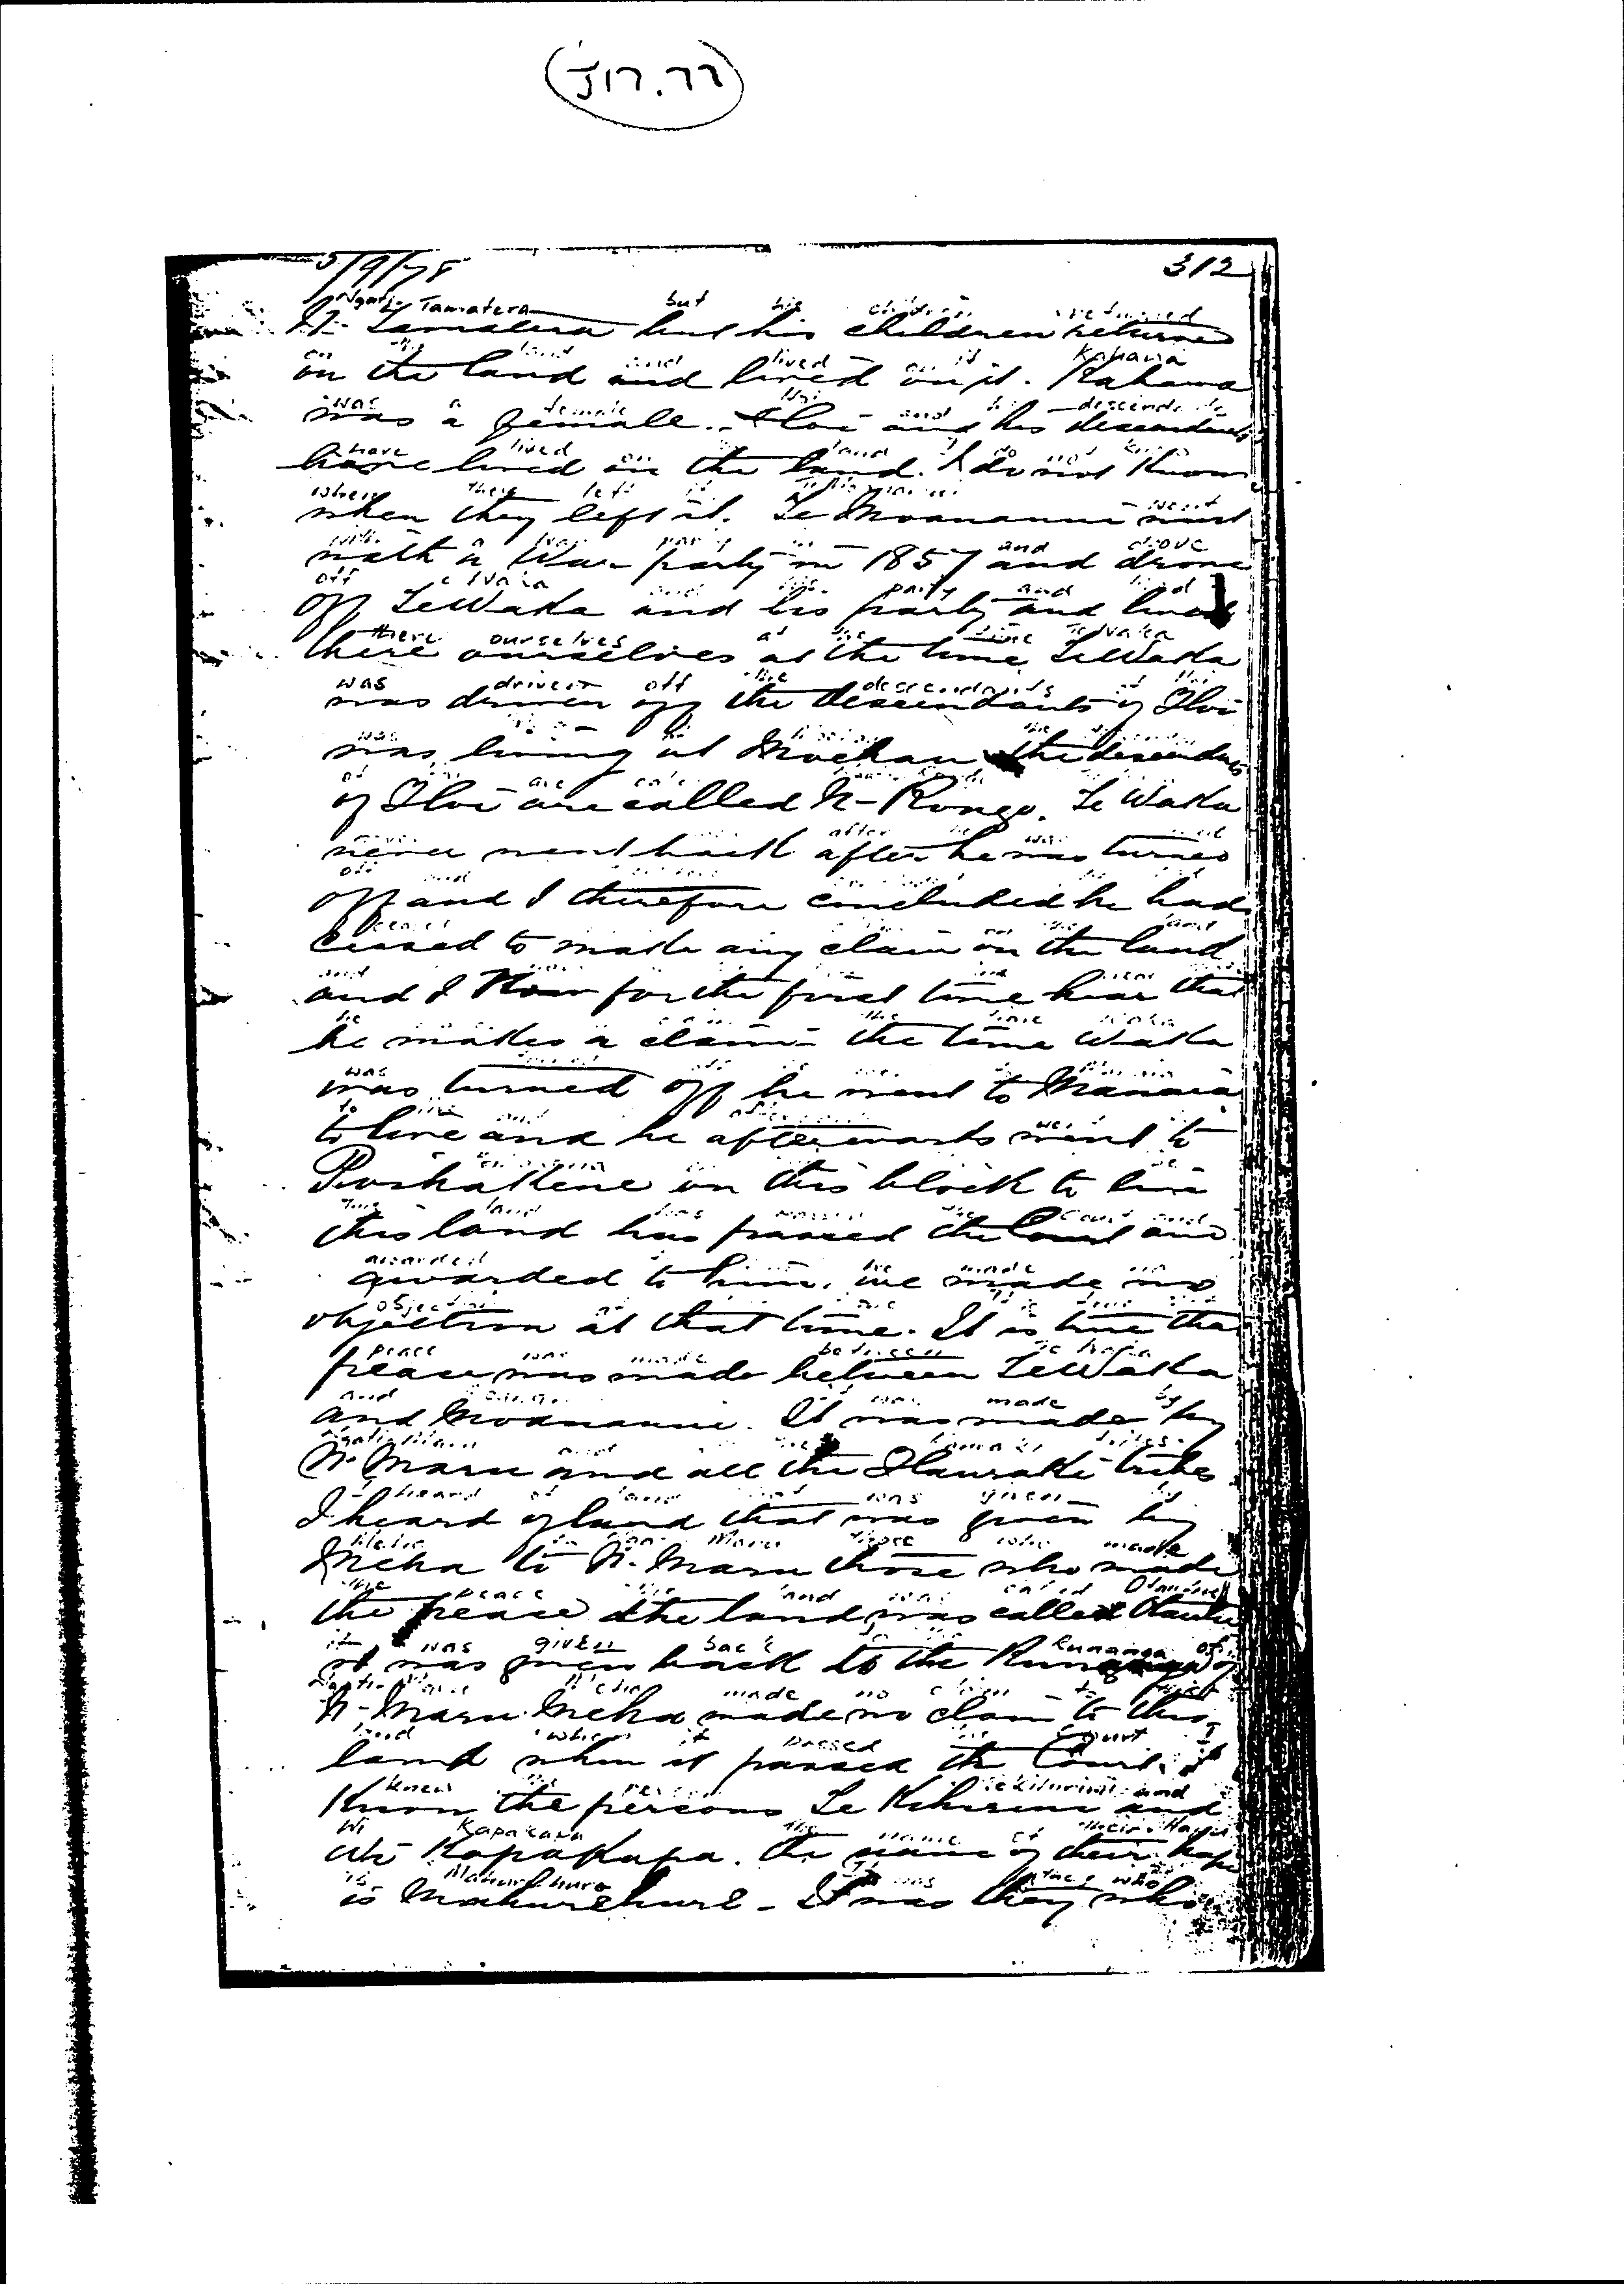 J17.77
5/9/78 312
N- Tamatera but his children returned
on the land and lived on it. Kahawa
was a female. Hoi and his descendants
have lived on the land. I do not know
when they left it. Te Moananui went
with a War party in 1857 and drove
off TeWaka and his party and lived
there ourselves at the time TeWaka
was driven off the descendants of Hoi
was living at Moehau the descendants
of Hoi are called N- Rongo. Te Waka
never went back after he was turned
off and I therefore concluded he had
ceased to make any claim on the land
and I now for the first time hear that
he makes a claim - the time Waka
was turned off he went to Manaia
to live and he afterwards went to
on this block to live
this land has passed the Court and
awarded to him. we made no
objection at that time. It is true that
peace was made between TeWaka
and Moananui. It was made by
N- Maru and all the Hauraki tribes
I heard of land that was given by
Meha to N. Maru those who made
the peace the land was called
it was given back to the Runanga of
N- Maru. Meha made no claim to this
land when it passed the Court. I
know the persons Te and
Wi Kapakapa. the name of their hapu
is Mahurehure - It was they who